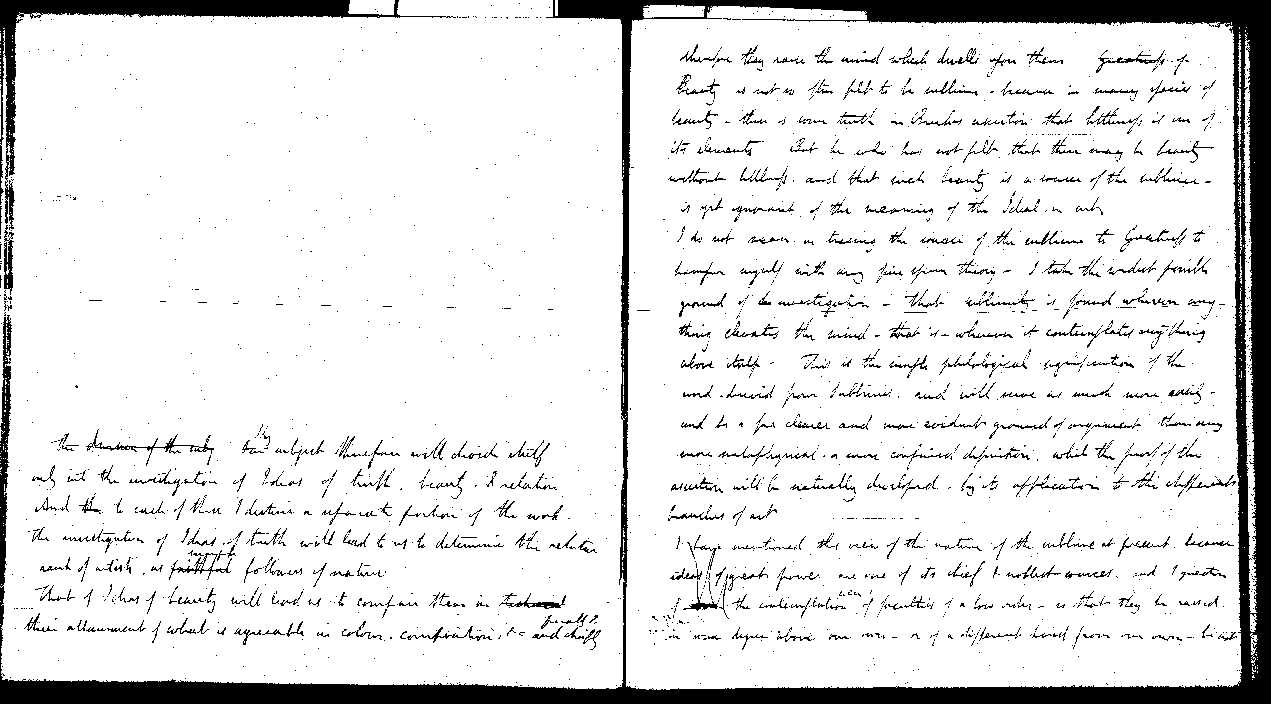 the division of the subj Our subject therefore will divide itself
only into the investigation of Ideas of truth, beauty, & relation
And to each of these I destine a separate portion of the work.
the investigation of Ideas of truth will lead us to determine the relative
rank of artists, as faithful followers of nature
That of Ideas of beauty will lead us to compare them in
their attainment of what is agreeable in colour, composition, &c and chiefly
therefore they raise the mind which dwells upon them Greatness of
Beauty is not so often felt to be sublime - because in many species of
beauty - there is some truth in Burke's assertion that littleness is one of
its elements But he who has not felt that there may be beauty
without littleness, and that such beauty is a source of the sublime -
is yet ignorant of the meaning of the Ideal in art.
I do not mean in tracing the source of the sublime to Greatness to
hamper myself with any fine spun theory - I take the widest possible
ground of investigation - that sublimity is found wherever any-
thing elevates the mind - that is - wherever it contemplates anything
above itself - This is the simple philological signification of the
word derived from Sublimis, and will serve us much more easily -
and be a far clearer and more evident ground of argument than any
more metaphysical or more confined definition, while the proof of the
assertion will be naturally developed by its application to the different
branches of art
I have mentioned the view of the nature of the sublime at present, because
ideas of great power, are one of its chief & noblest sources, and I question
if the contemplation of faculties of a low order - so that they be raised
in some degree above our own - or of a different kind from our own - be not